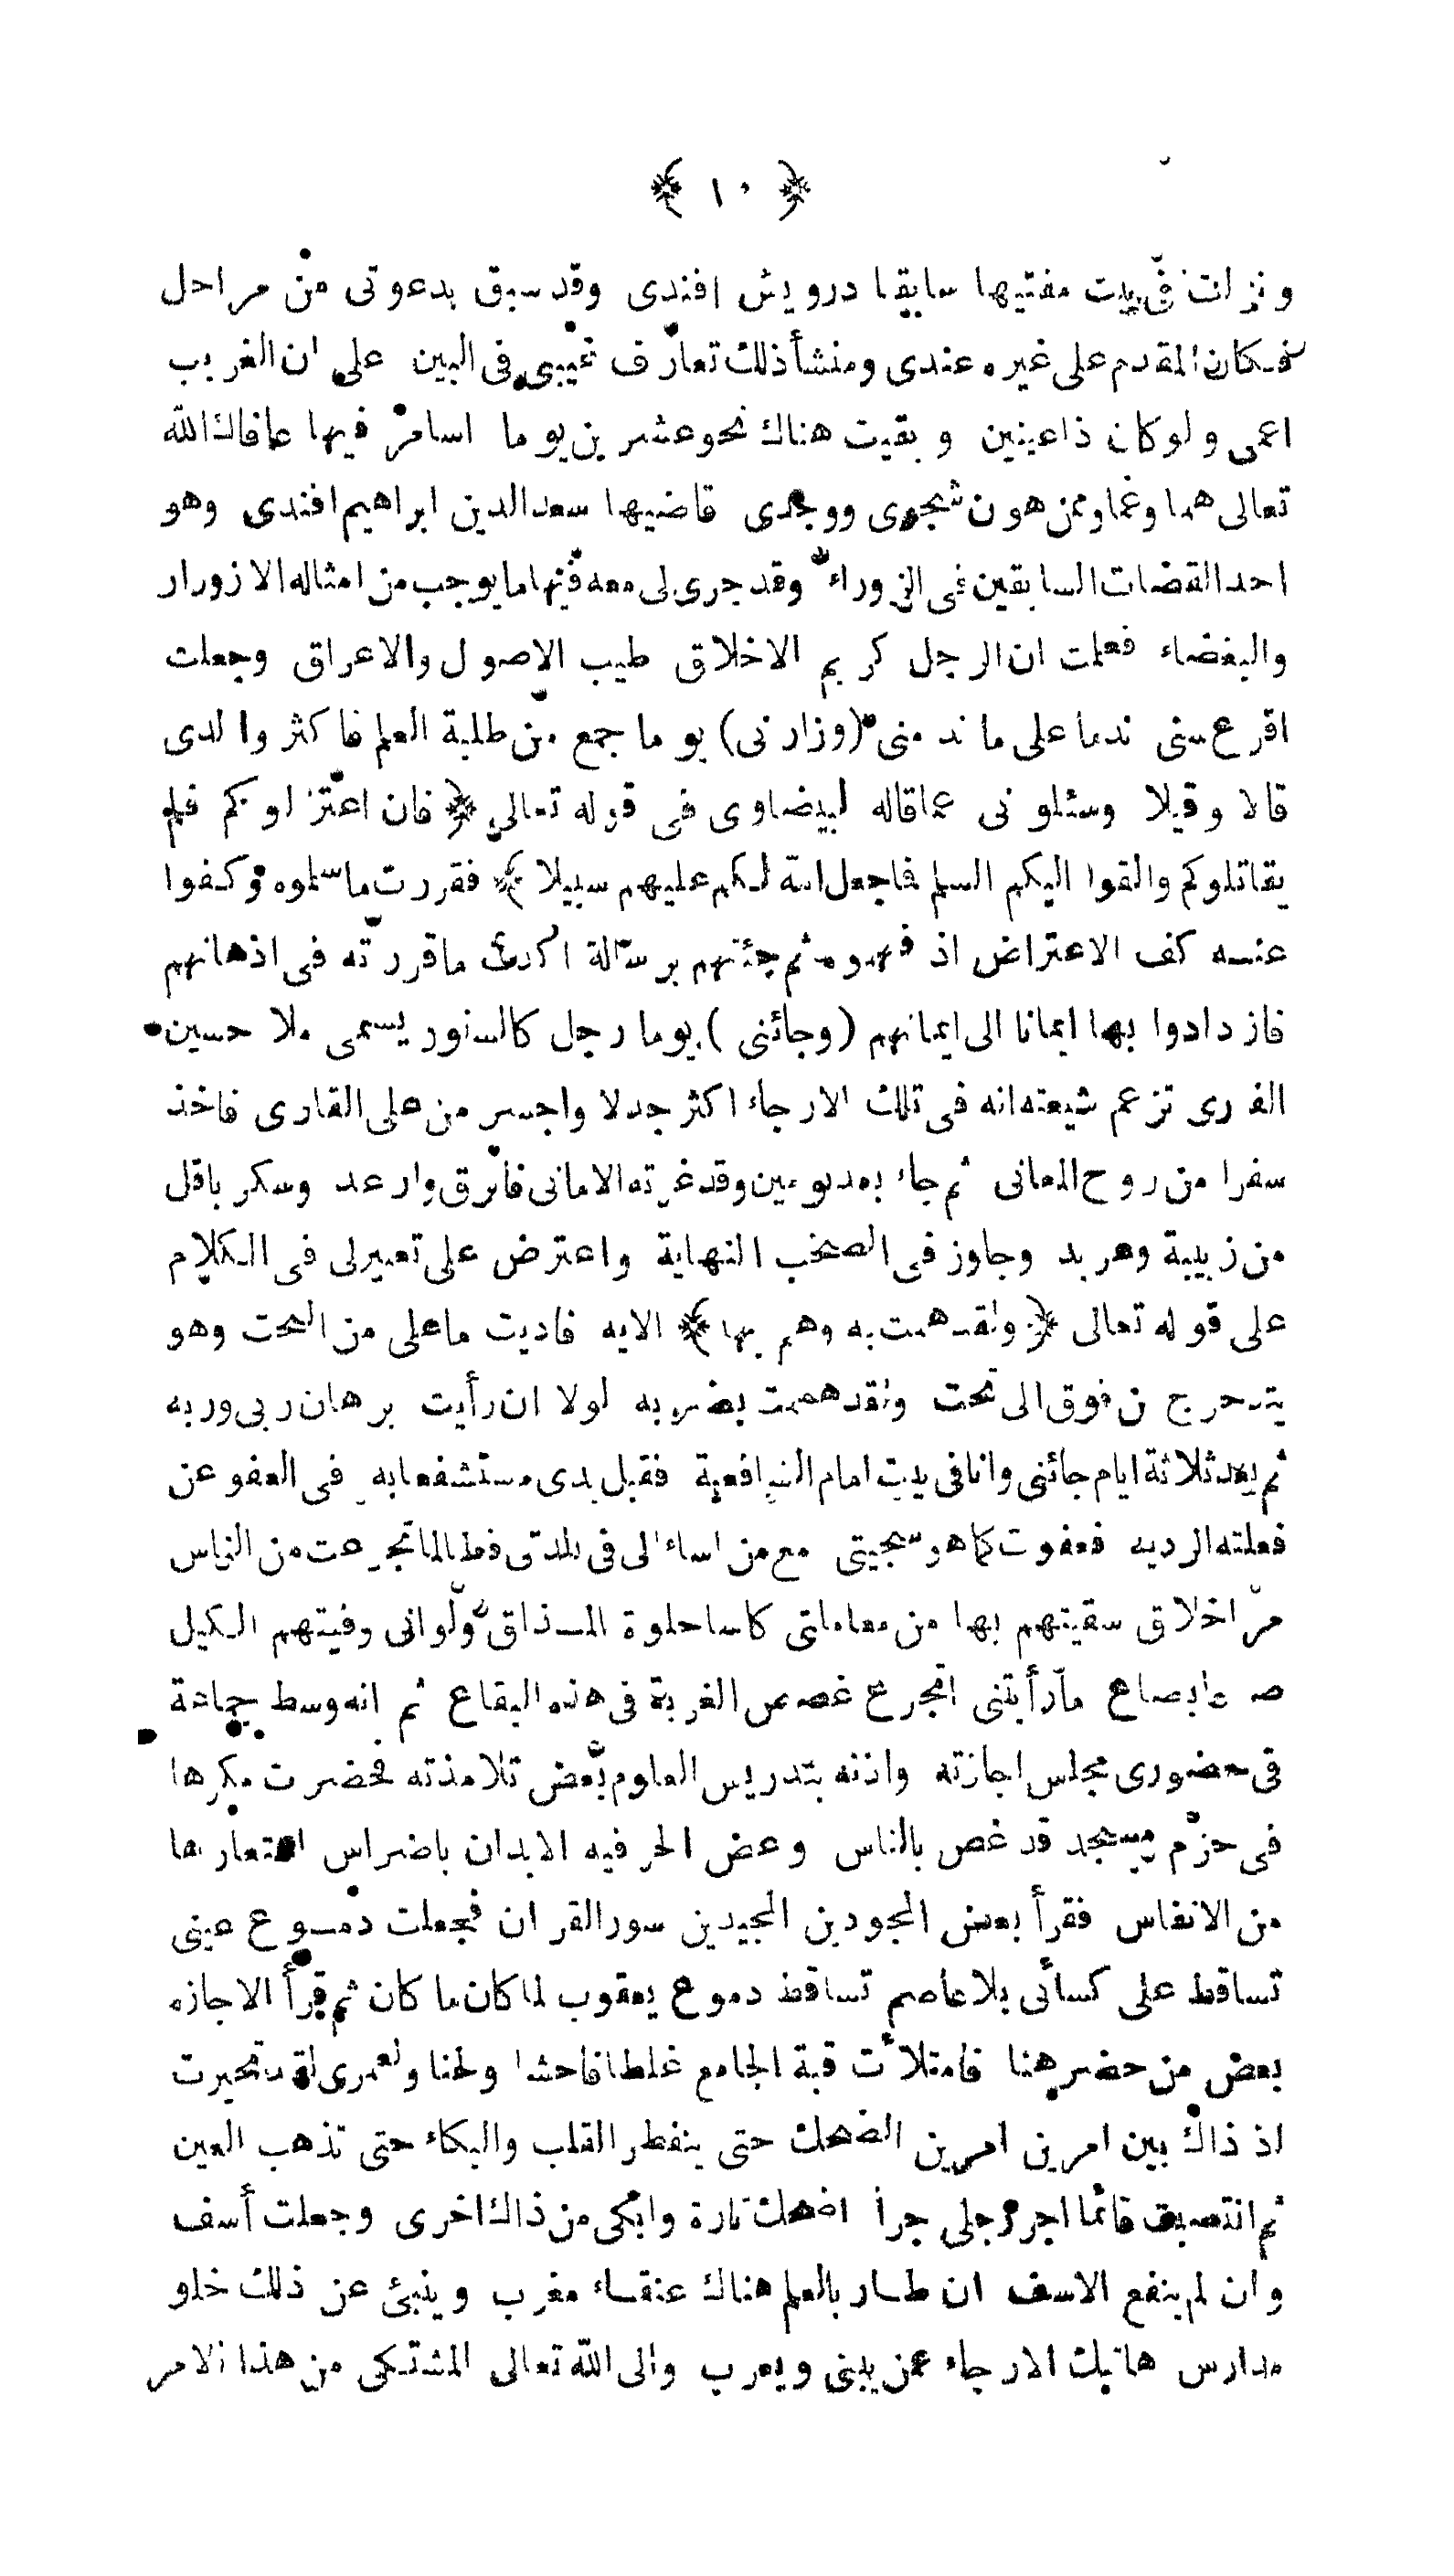 ﴿ ١٠ ﴾
ونزلت فى بيت مفتيها سابقا درويش افندى وقد سبق بدعوتى من مراحل
فكان المقدم على غيره عندى ومنشأ ذلك تعارف غيبى فى البين على ان الغريب
اعمى ولوكان ذا عينين وبقيت هناك نحو عشرين يوما اسامر فيها عافاك الله
تعالى هما وغما وممن هون شجوى ووجدى قاضيها سعد الدين ابراهيم افندى وهو
احد القضات السابقين فى الزوراء وقد جرى لى معه فيها ما يوجب من امثاله الازورار
والبغضاء فعلمت ان الرجل كريم الاخلاق طيب الاصول والاعراق وجعلت
اقرع سنى ندما على ما ند منى (وزارنى) يوما جمع من طلبة العلم فاكثروا لدى
قالا وقيلا وسئلونى عما قاله لبيضاوى فى قوله تعالى ﴿ فان اعتزلوكم فلم
يقاتلوكم والقوا اليكم السلم فما جعل الله لكم عليهم سبيلا ﴾ فقررت ما سئلوه وكفوا
عنه كف الاعتراض اذ فهموه ثم جئتهم برسالة اكدت ما قررته فى اذهانهم
فازدادوا بها ايمانا الى ايمانهم (وجائنى) يوما رجل كالسنور يسمى ملا حسين
الغورى تزعم شيعته انه فى تلك الارجاء اكثر جدلا واجسر من على القارى فاخذ
سفرا من روح المعانى ثم جاء بعد يومين وقد غرته الامانى فابرق وارعد وسكر باقل
من زبيبة وعربد وجاوز فى الصخب النهاية واعترض على تعبير لى فى الكلام
على قوله تعالى ﴿ ولقد همت به وهم بها ﴾ الايه فاديت ما على من البحث وهو
يتدحرج من فوق الى تحت ولقد هممت بضربه لولا ان رأيت برهان ربى وربه
ثم بعد ثلاثة ايام جائنى وانا فى بيت امام الشافعية فقبل يدى مستشفعا به فى العفو عن
فعلته الرديه فعفوت كما هو سجيتى مع من اساء الى فى بلدتى فطالما تجرعت من الناس
مر اخلاق سقيتهم بها من معاملتى كاسا حلوة المذاق ولو انى وفيتهم الكيل
صاعا بصاع ما رأيتنى اتجرع غصص الغربة فى هذه البقاع ثم انه وسط جماعة
فى حضورى مجلس اجازته واذنه بتدريس العلوم بعض تلامذته فحضرت مكرها
فى حرم مسجد قد غص بالناس وعض الحر فيه الابدان باضراس استعارها
من الانفاس فقرأ بعض المجودين المجيدين سور القران فجعلت دموع عينى
تساقط على كسائى بلا عاصم تساقط دموع يعقوب لما كان ما كان ثم قرأ الاجازه
بعض من حضر هنا فامتلأت قبة الجامع غلطا فاحشا ولحنا ولعمرى لقد تحيرت
اذ ذاك بين امرين امرين الضحك حتى ينفطر القلب والبكاء حتى تذهب العين
ثم انتصبت قائما اجر رجلى جرا اضحك تارة وابكى من ذاك اخرى وجعلت أسف
وان لم ينفع الاسف ان طار بالعلم هناك عنقاء مغرب وينبئ عن ذلك خلو
مدارس هاتيك الارجاء عمن يبنى ويعرب والى الله تعالى المشتكى من هذا الامر